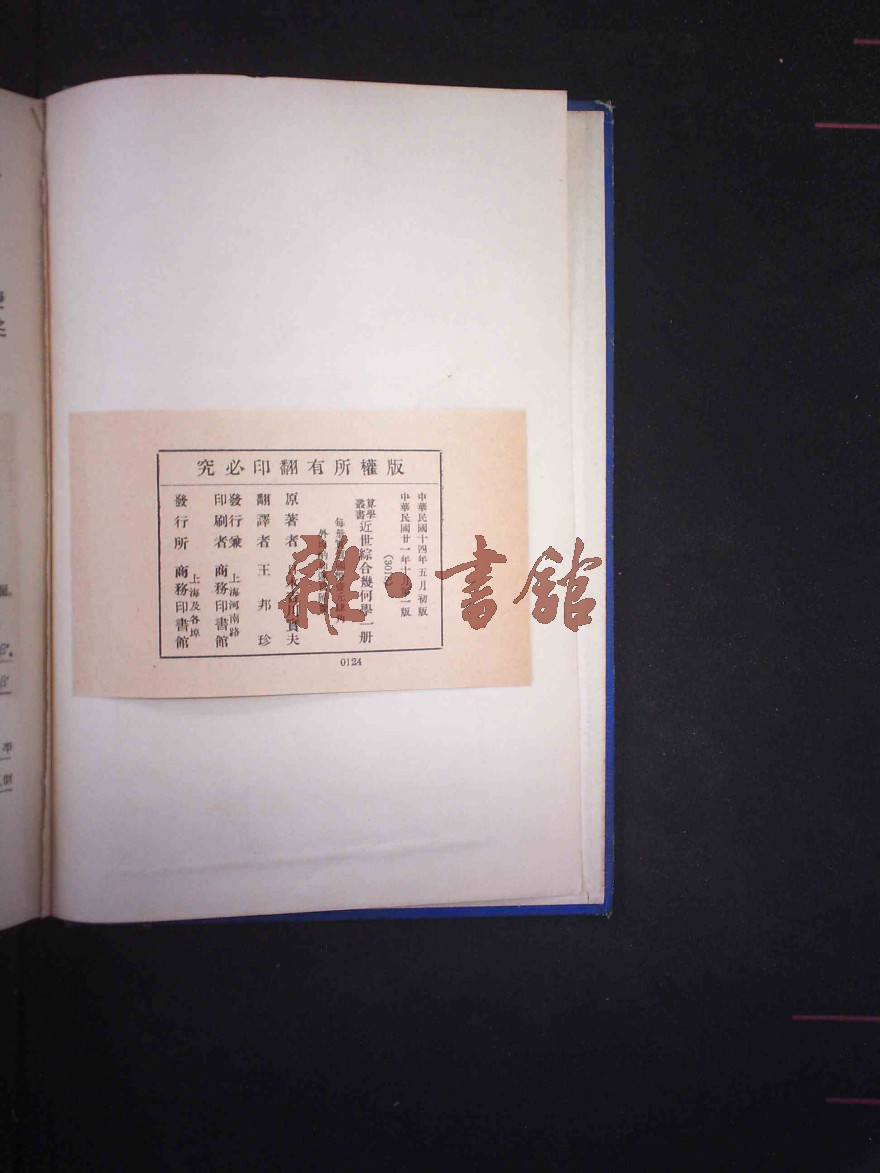 版權所有翻印必究
中華民國十四年五月初版
中華民國廿一年十
一版
算學叢書
近世綜合幾何學一册
原著者
川實夫
翻譯者 王邦珍
發行兼印刷者 上海河南路 商務印書館
發行所 上海及各埠 商務印書館
0124
雜·書館